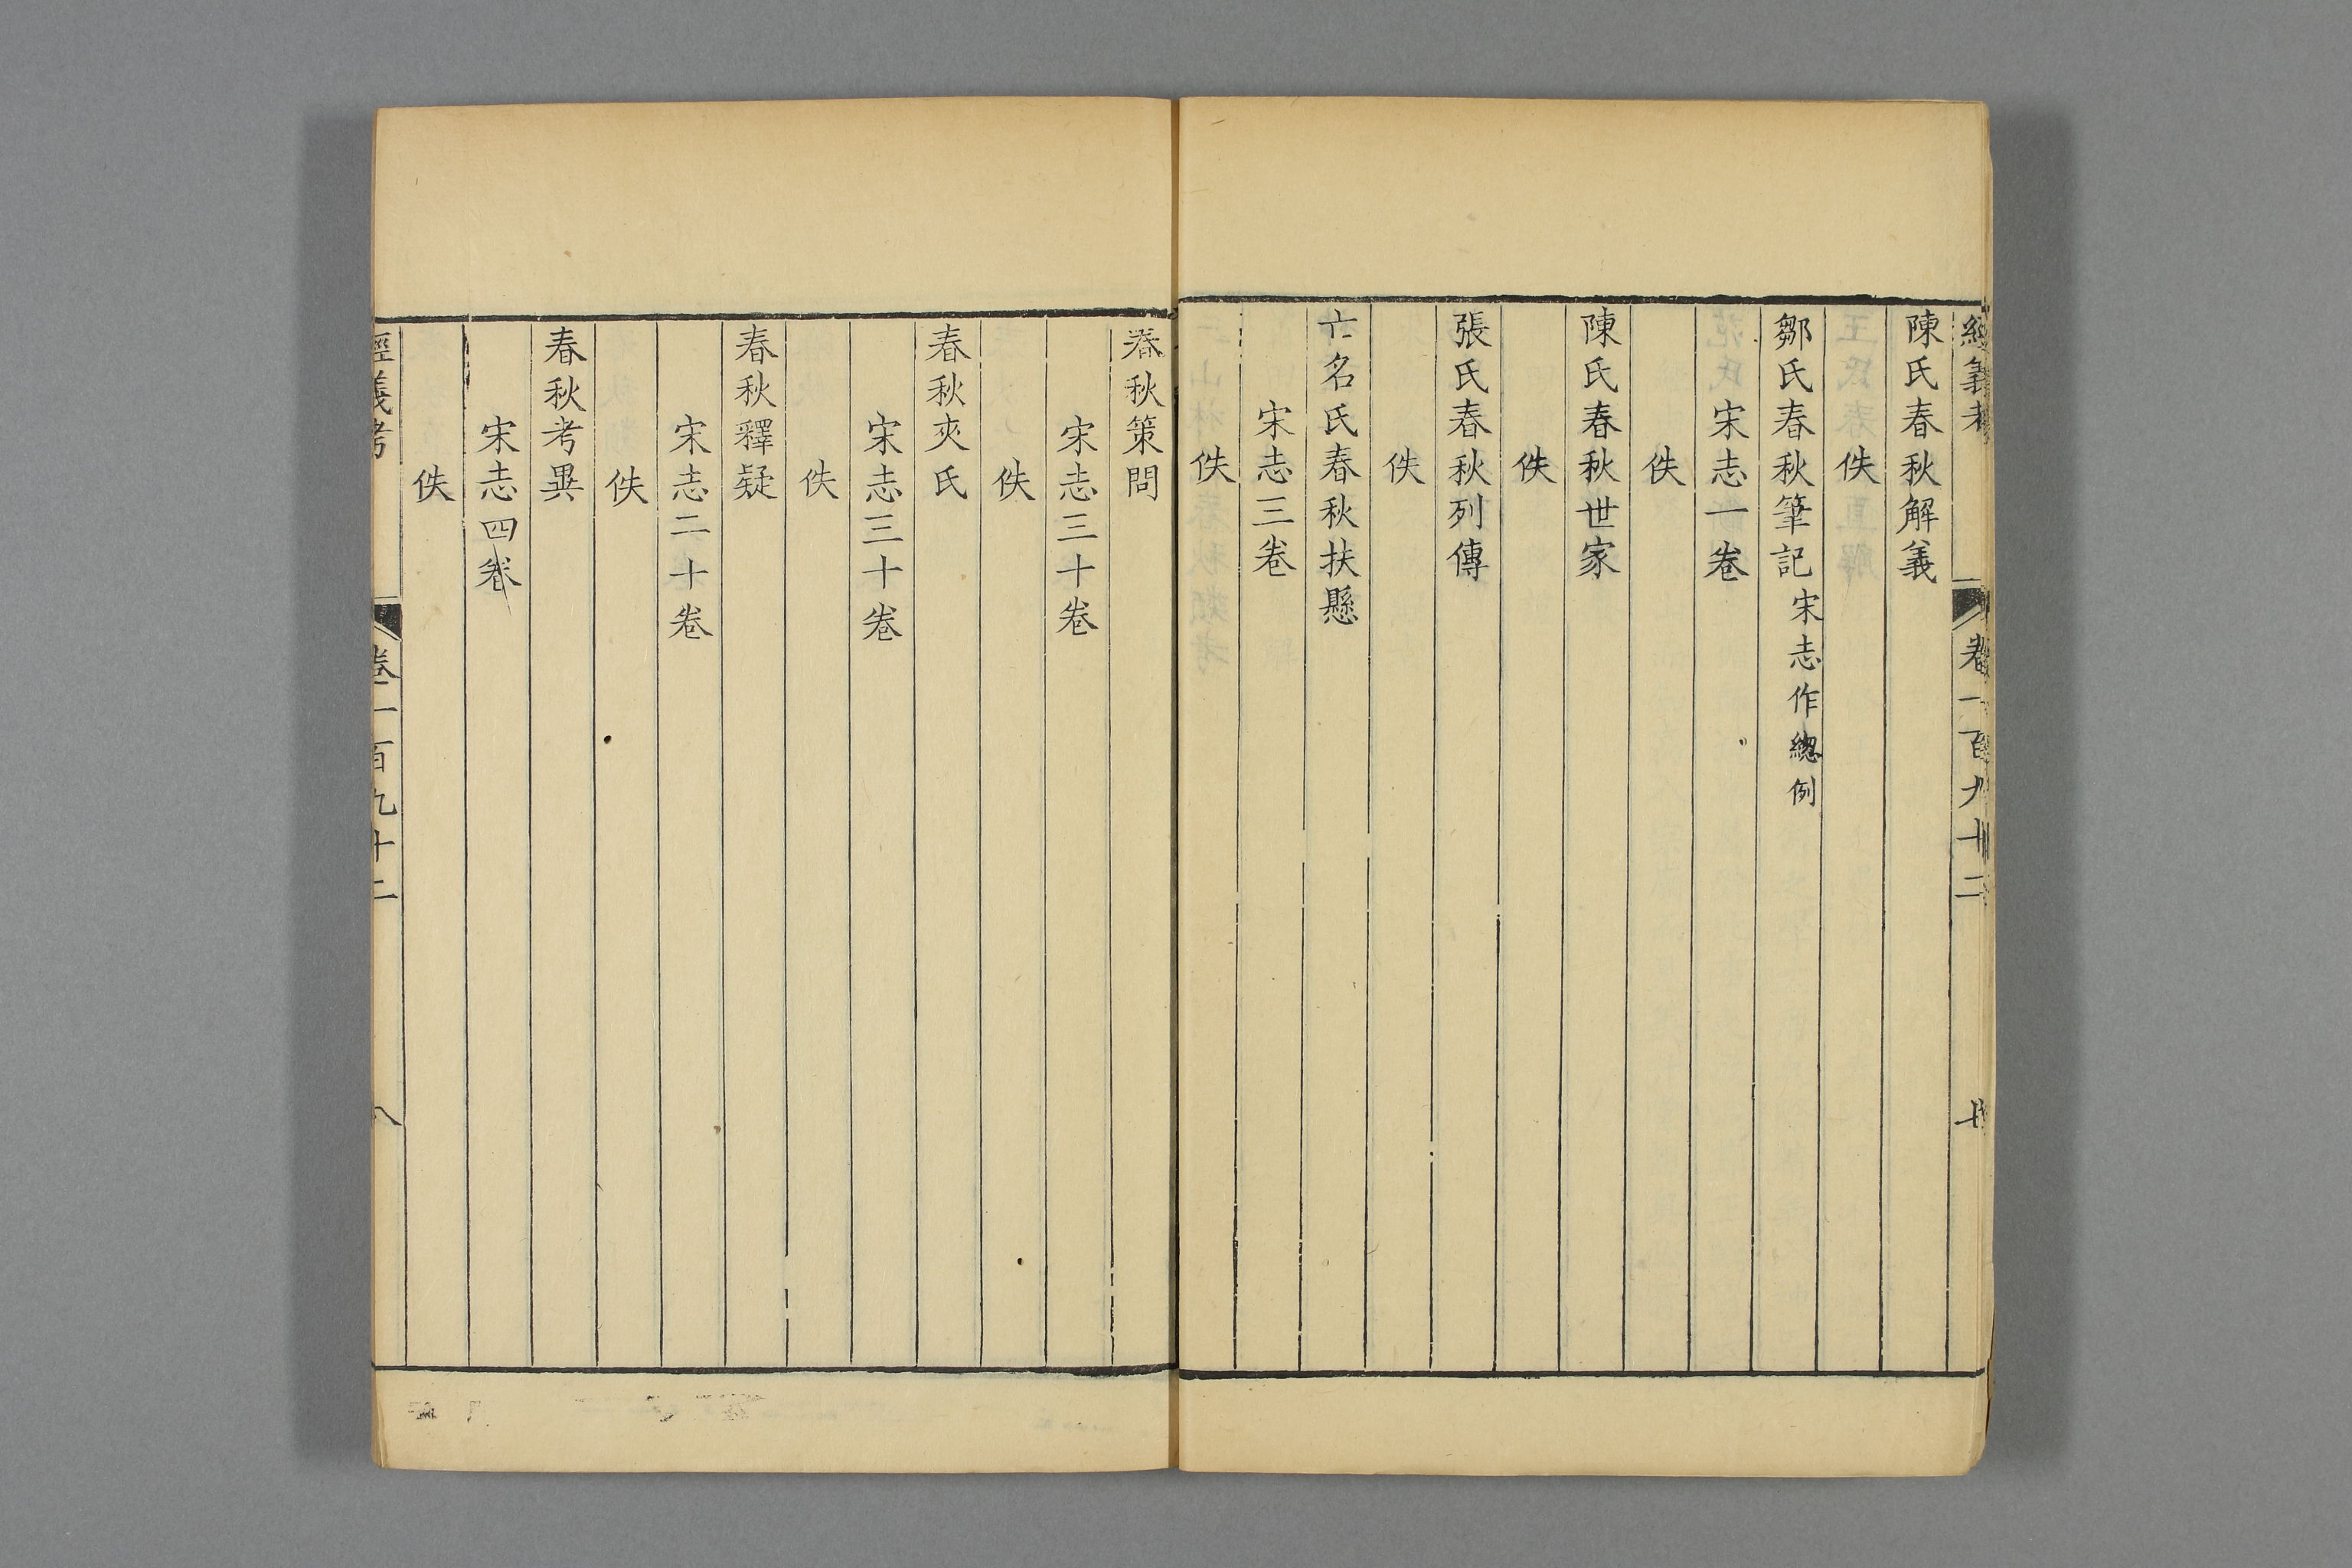 陳氏春秋解義
佚
鄒氏春秋筆記宋志作緫例
宋志一卷
佚
陳氏春秋世家
佚
張氏春秋列傳
佚
亡名氏春秋扶懸
宋志三卷
佚
春秋策問
宋志三十卷
佚
春秋夾氏
宋志三十卷
佚
春秋釋疑
宋志二十卷
佚
春秋考異
宋志四卷
佚
經義考 卷一百九十二 八